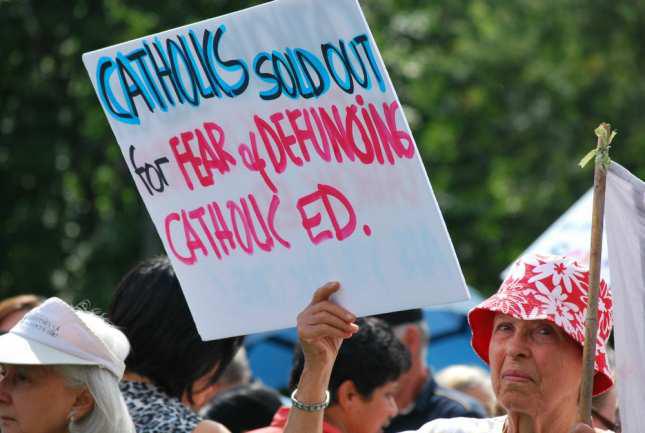 CATHOLICS SOLD OUT
for FEAR of DEFUNCING
CATHOLIC ED.